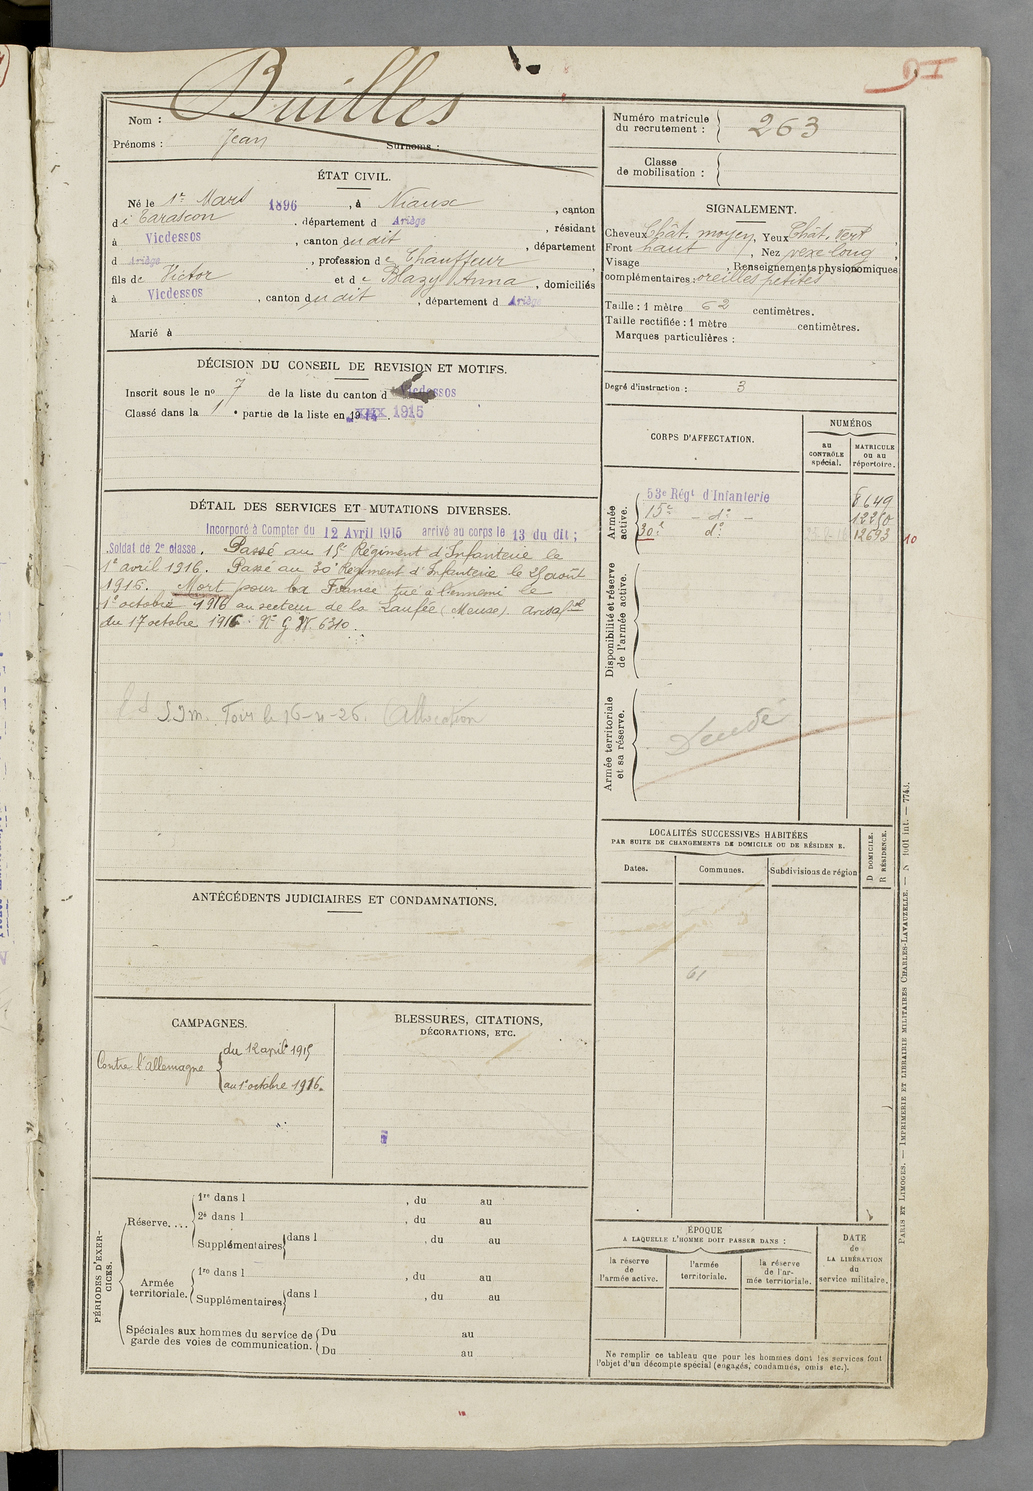 Nom : Builles
Prénoms : Jean Surnoms :
ÉTAT CIVIL.
Né le 1er Mars 1896, à Niaux, canton
de Tarascon, département d Ariège, résidant
à Vicdessos, canton dudit, département
d Ariège, profession de Chauffeur,
fils de Victor et de Blazy Anna, domiciliés
à Vicdessos, canton dudit, département d Ariège
Marié à
DÉCISION DU CONSEIL DE REVISION ET MOTIFS.
Inscrit sous le no 7 de la liste du canton d Vicdessos
Classé dans la 1e partie de la liste en 1915
DÉTAIL DES SERVICES ET MUTATIONS DIVERSES.
Incorporé à Compter du 12 Avril 1915 arrivé au corps le 13 du dit ;
Soldat de 2e classe. Passé au 15e Régiment d'Infanterie le
1er avril 1916. Passé au 30e Régiment d'Infanterie le 25 août
1916. Mort pour la France tué à l'ennemi le
1er octobre 1916 au secteur de la Laufée (Meuse). avis
du 17 octobre 1916. No G W 6310.
Allocation
ANTÉCÉDENTS JUDICIAIRES ET CONDAMNATIONS.
CAMPAGNES.
Contre l'Allemagne
du 12 avril 1915
au 1er octobre 1916.
BLESSURES, CITATIONS,
DÉCORATIONS, ETC.
PÉRIODES D'EXER-
CICES.
Réserve....
1re dans l , du au
2e dans l , du au
Supplémentaires dans l , du au
Armée
territoriale.
1re dans l , du au
Supplémentaires dans l , du au
Spéciales aux hommes du service de
garde des voies de communication.
Du au
Du au
Numéro matricule
du recrutement : 263
Classe
de mobilisation :
SIGNALEMENT.
Cheveux Chât. moyen, Yeux Chât. vert
Front haut, Nez vexe long,
Visage , Renseignements physionomiques
complémentaires : oreilles petites
Taille : 1 mètre 62 centimètres.
Taille rectifiée : 1 mètre centimètres.
Marques particulières :
Degré d'instruction : 3
CORPS D'AFFECTATION.
NUMÉROS
au
CONTRÔLE
spécial.
MATRICULE
ou au
répertoire.
Armée
active.
53e Régt d'Infanterie 8649
15e - do - 12250
30e do 12693
10
Disponibilité et réserve
de l'armée active.
Armée territoriale
et sa réserve.
LOCALITÉS SUCCESSIVES HABITÉES
PAR SUITE DE CHANGEMENTS DE DOMICILE OU DE RÉSIDEN E.
Dates.
Communes.
Subdivisions de région
D DOMICILE.
R RÉSIDENCE.
61
ÉPOQUE
A LAQUELLE L'HOMME DOIT PASSER DANS :
la réserve
de
l'armée active.
l'armée
territoriale.
la réserve
de l'ar-
mée territoriale.
DATE
de
LA LIBÉRATION
du
service militaire.
Ne remplir ce tableau que pour les hommes dont les services font
l'objet d'un décompte spécial (engagés, condamnés, omis etc.).
PARIS ET LIMOGES. — IMPRIMERIE ET LIBRAIRIE MILITAIRES CHARLES-LAVAUZELLE. — N 1001 int. — 7743.